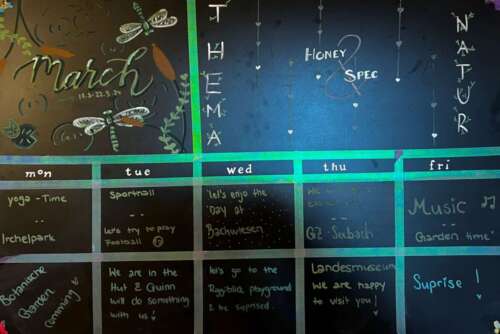 March
THEMA
HONEY
&
SPEC
NATUR
mon
tue
wed
thu
fri
yoga - Time
..
Irchelpark
Sportnall
..
Let's try to pray
Football
let's enjo the
Day at
Bachwiesen
GZ Seebach
Music
--
Garden time
Botanische
Garden
comming
We are in the
Hut & Quinn
will do something
with us
let's go to the
playground
& be suprised..
Landesmuseum
We are happy
to visit you!
Suprise!